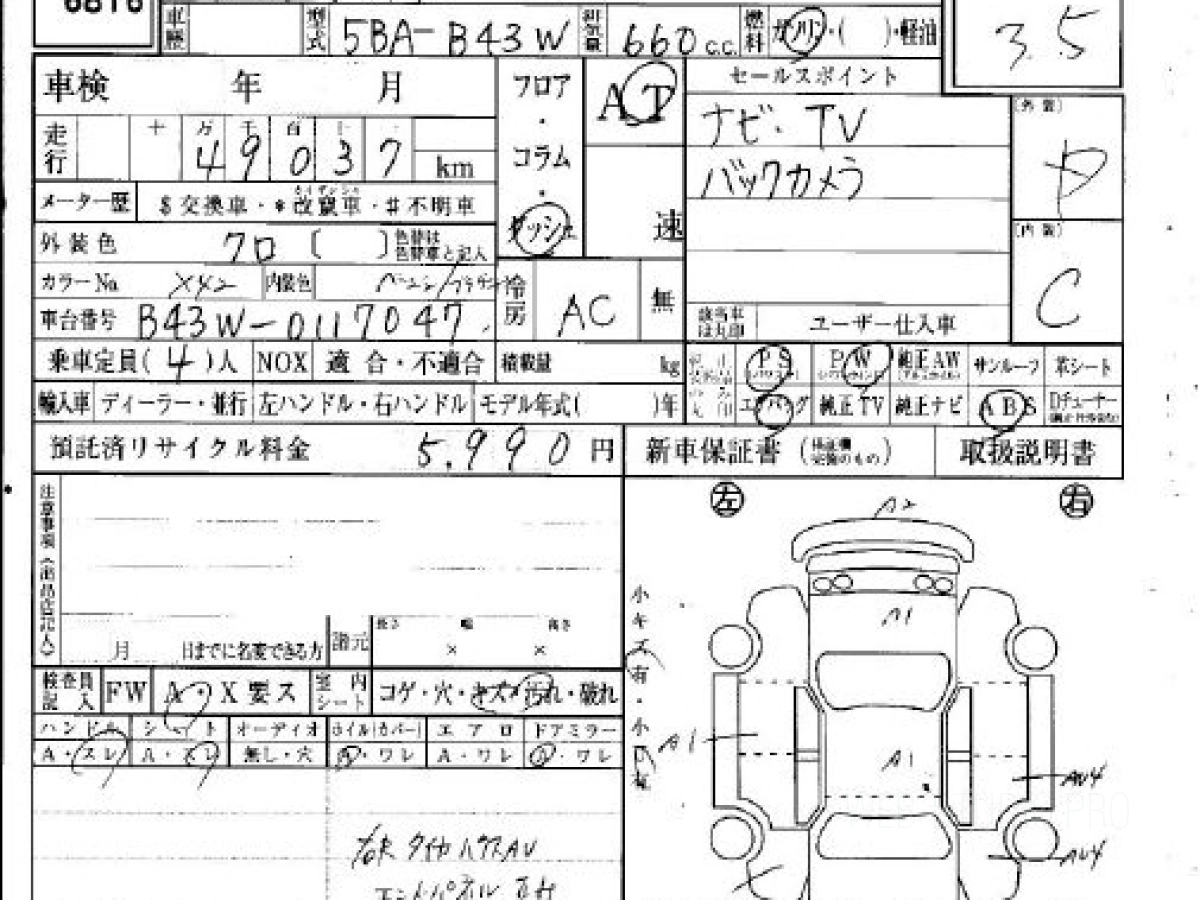 6816
車歴 型式 5BA-B43W 排気量 660 c.c. 燃料 ガソリン・( )・軽油
3.5
車検 年 月 フロア・コラム・ダッシュ AT 速
セールスポイント
ナビ・TV
バックカメラ
走行 十 万 千 百 十 一 49037 km
メーター歴 $交換車・*改竄車・#不明車
カイザンシャ
外装色 クロ〔 〕色替は色替車と記入
(外装) D
(内装) C
カラーNo X42 内装色
冷房 AC 無
車台番号 B43W-0117047
該当車は丸印 ユーザー仕入車
乗車定員(4)人 NOX 適合・不適合 積載量 kg
PS PW 純正AW サンルーフ 革シート
輸入車 ディーラー・並行 左ハンドル・右ハンドル モデル年式( )年
エアバッグ 純正TV 純正ナビ ABS Dチューナー
預託済リサイクル料金 5,990円
新車保証書 (検証欄完備のもの) 取扱説明書
注意事項(出品店記入)
左 右
A2
A1
小キズ有・小凹有
A1
A1
月 日までに名変できる方 諸元 長さ × 幅 × 高さ
検査員記入 FW A・X要ス 室内シート コゲ・穴・キズ・汚れ・破れ
ハンドル シート オーディオ ホイル(カバー) エアロ ドアミラー
A・スレ A・スレ 無し・穴 A・ワレ A・ワレ A・ワレ